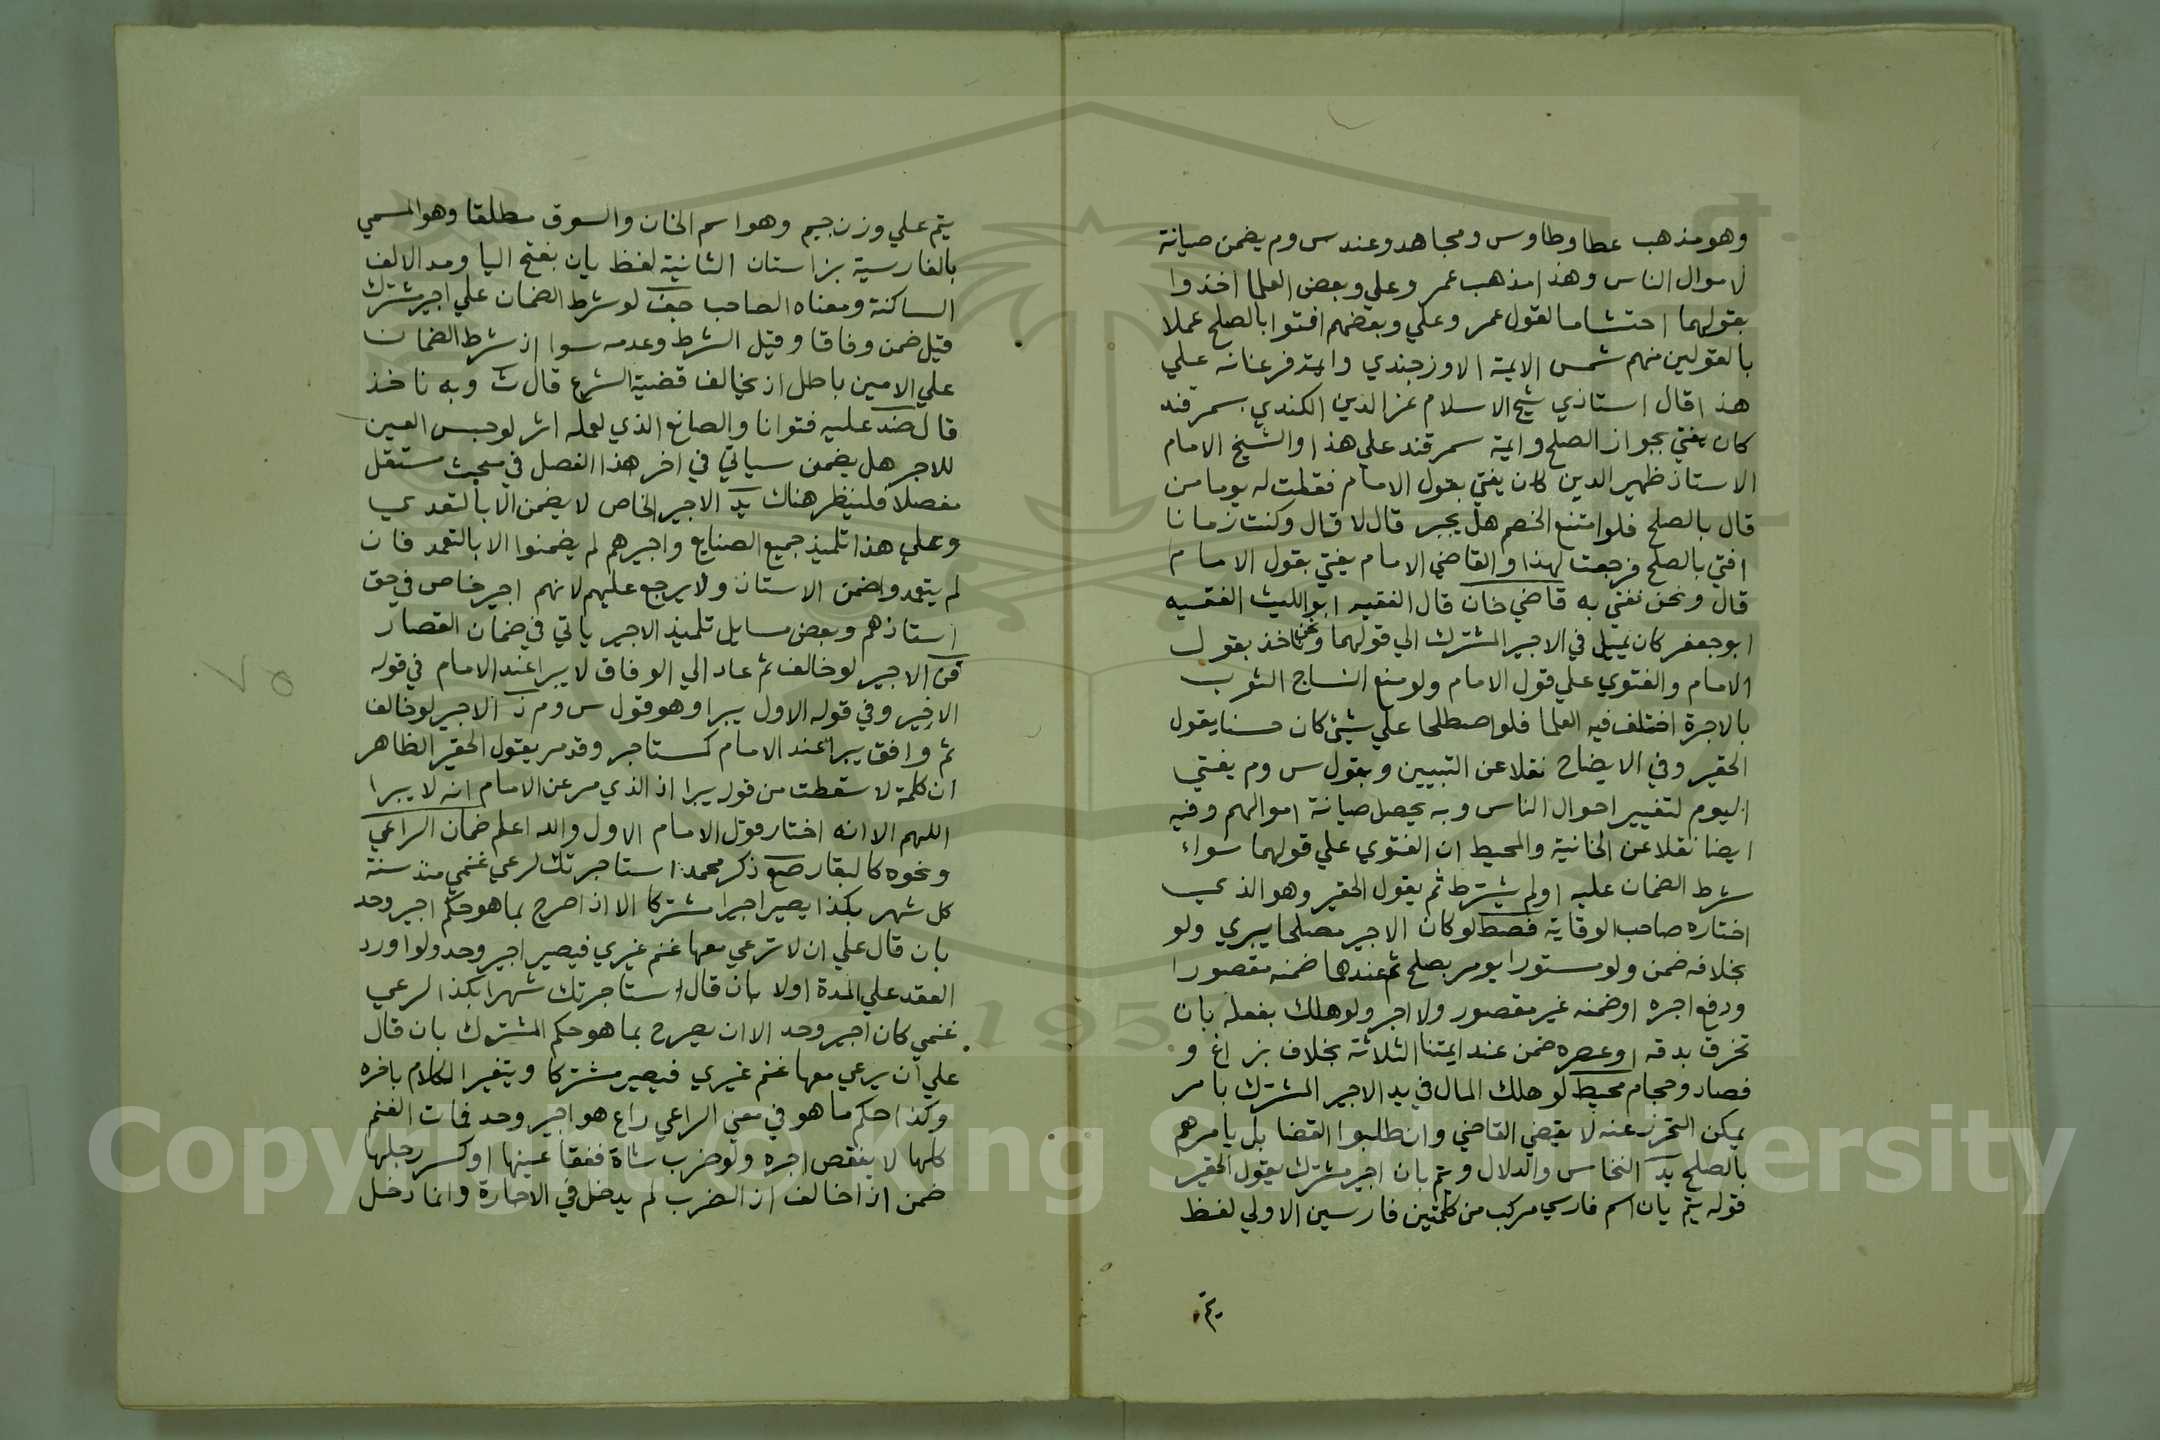 وهو مذهب عطا وطاوس ومجاهد وعند س وم يضمن صيانة
لاموال الناس وهذا مذهب عمر وعلي وبعض العلما اخذوا
بقولهما احتشاما لقول عمر وعلي وبعضهم افتوا بالصلح عملا
بالقولين منهم شمس الايمة الاوزجندي وايمة فرغانه علي
هذا قال استاذي شيخ الاسلام عز الدين الكندي بسمرقند
كان يفتي بجواز الصلح وايمة سمرقند علي هذا والشيخ الامام
الاستاذ ظهير الدين كان يفتي بقول الامام فقلت له يوما من
قال بالصلح فلو امتنع الخصم هل يجبر قال لا قال وكنت زمانا
افتي بالصلح فرجعت لهذا والقاضي الامام يفتي بقول الامام
قال ونحن نفتي به قاضي خان قال الفقيه ابو الليث الفقيه
ابو جعفر كان يميل في الاجير المشترك الي قولهما ونحن ناخذ بقول
الامام والفتوي علي قول الامام ولو منع النساج الثوب
بالاجرة اختلف فيه العلما فلو اصطلحا علي شيئ كان حسنا يقول
الحقير وفي الايضاح نقلا عن التبيين وبقول س وم يفتي
اليوم لتغيير احوال الناس وبه يحصل صيانة اموالهم وفيه
ايضا نقلا عن الخانية والمحيط ان الفتوي علي قولهما سواء
شرط الضمان عليه او لم يشترط ثم يقول الحقير وهو الذي
اختاره صاحب الوقاية فصط لو كان الاجير مصلحا يبري ولو
بخلافه ضمن ولو مستورا يومر بصلح ثم عندهما ضمنه مقصورا
ودفع اجره او ضمنه غير مقصور ولا اجر ولو هلك بفعله بان
تخرق بدقه او عصره ضمن عند ايمتنا الثلاثة بخلاف بزاغ و
فصاد وحجام محيط لو هلك المال في يد الاجير المشترك بامر
يمكن التحرز عنه لا يقضي القاضي وان طلبوا القضا بل يامرهم
بالصلح يد النخاس والدلال ويتم بان اجير مشترك يقول الحقير
قوله يتم يان اسم فارسي مركب من كلمتين فارسين الاولي لفظ
يتم
يتم علي وزن جيم وهو اسم الخان والسوق مطلقا وهو المسمي
بالفارسية بزاستان الثانية لفظ يان بفتح اليا ومد الالف
الساكنة ومعناه الصاحب جف لو شرط الضمان علي اجير مشترك
قيل ضمن وفاقا وقيل الشرط وعدمه سوا اذ شرط الضمان
علي الامين باطل اذ يخالف قضية الشرع قال ث وبه ناخذ
قال ضد عليه فتوانا والصانع الذي لعمله اثر لو حبس العين
للاجر هل يضمن سياتي في اخر هذا الفصل في مبحث مستقل
مفصلا فلينظر هناك يد الاجير الخاص لا يضمن الا بالتعدي
وعلي هذا تلميذ جميع الصنايع واجيرهم لم يضمنوا الا بالتعمد فان
لم يتعمدوا ضمن الاستاذ ولا يرجع عليهم لانهم اجير خاص في حق
استاذهم وبعض مسايل تلميذ الاجير ياتي في ضمان القصار
فن الاجير لو خالف ثم عاد الي الوفاق لا يبرا عند الامام في قوله
الاخير وفي قوله الاول يبرا وهو قول س وم ذ الاجير لو خالف
ثم وافق يبرا عند الامام كمستاجر وقد مر يقول الحقير الظاهر
ان كلمة لا سقطت من قوله يبرا اذ الذي مر عن الامام انه لا يبرا
اللهم الا انه اختار قول الامام الاول والله اعلم ضمان الراعي
ونحوه كالبقار صع ذكر محمد استاجرتك لرعي غنمي منذ سنة
كل شهر بكذا يصير اجيرا مشتركا الا اذ اصرح بما هو حكم اجير وحد
بان قال علي ان لا ترعي معها غنم غيري فيصير اجير وحد ولو اورد
العقد علي المدة اولا بان قال استاجرتك شهرا بكذا لرعي
غنمي كان اجير وحد الا ان يصرح بما هو حكم المشترك بان قال
علي ان يرعي معها غنم غيري فيصير مشتركا ويتغير الكلام باخره
وكذا حكم ما هو في معني الراعي راع هو اجير وحد فمات الغنم
كلها لا ينقص اجره ولو ضرب شاة ففقا عينها او كسر رجلها
ضمن اذ اخالف اذ الضرب لم يدخل في الاجارة وانما دخل
٧٥
Copyright © King Saud University
195